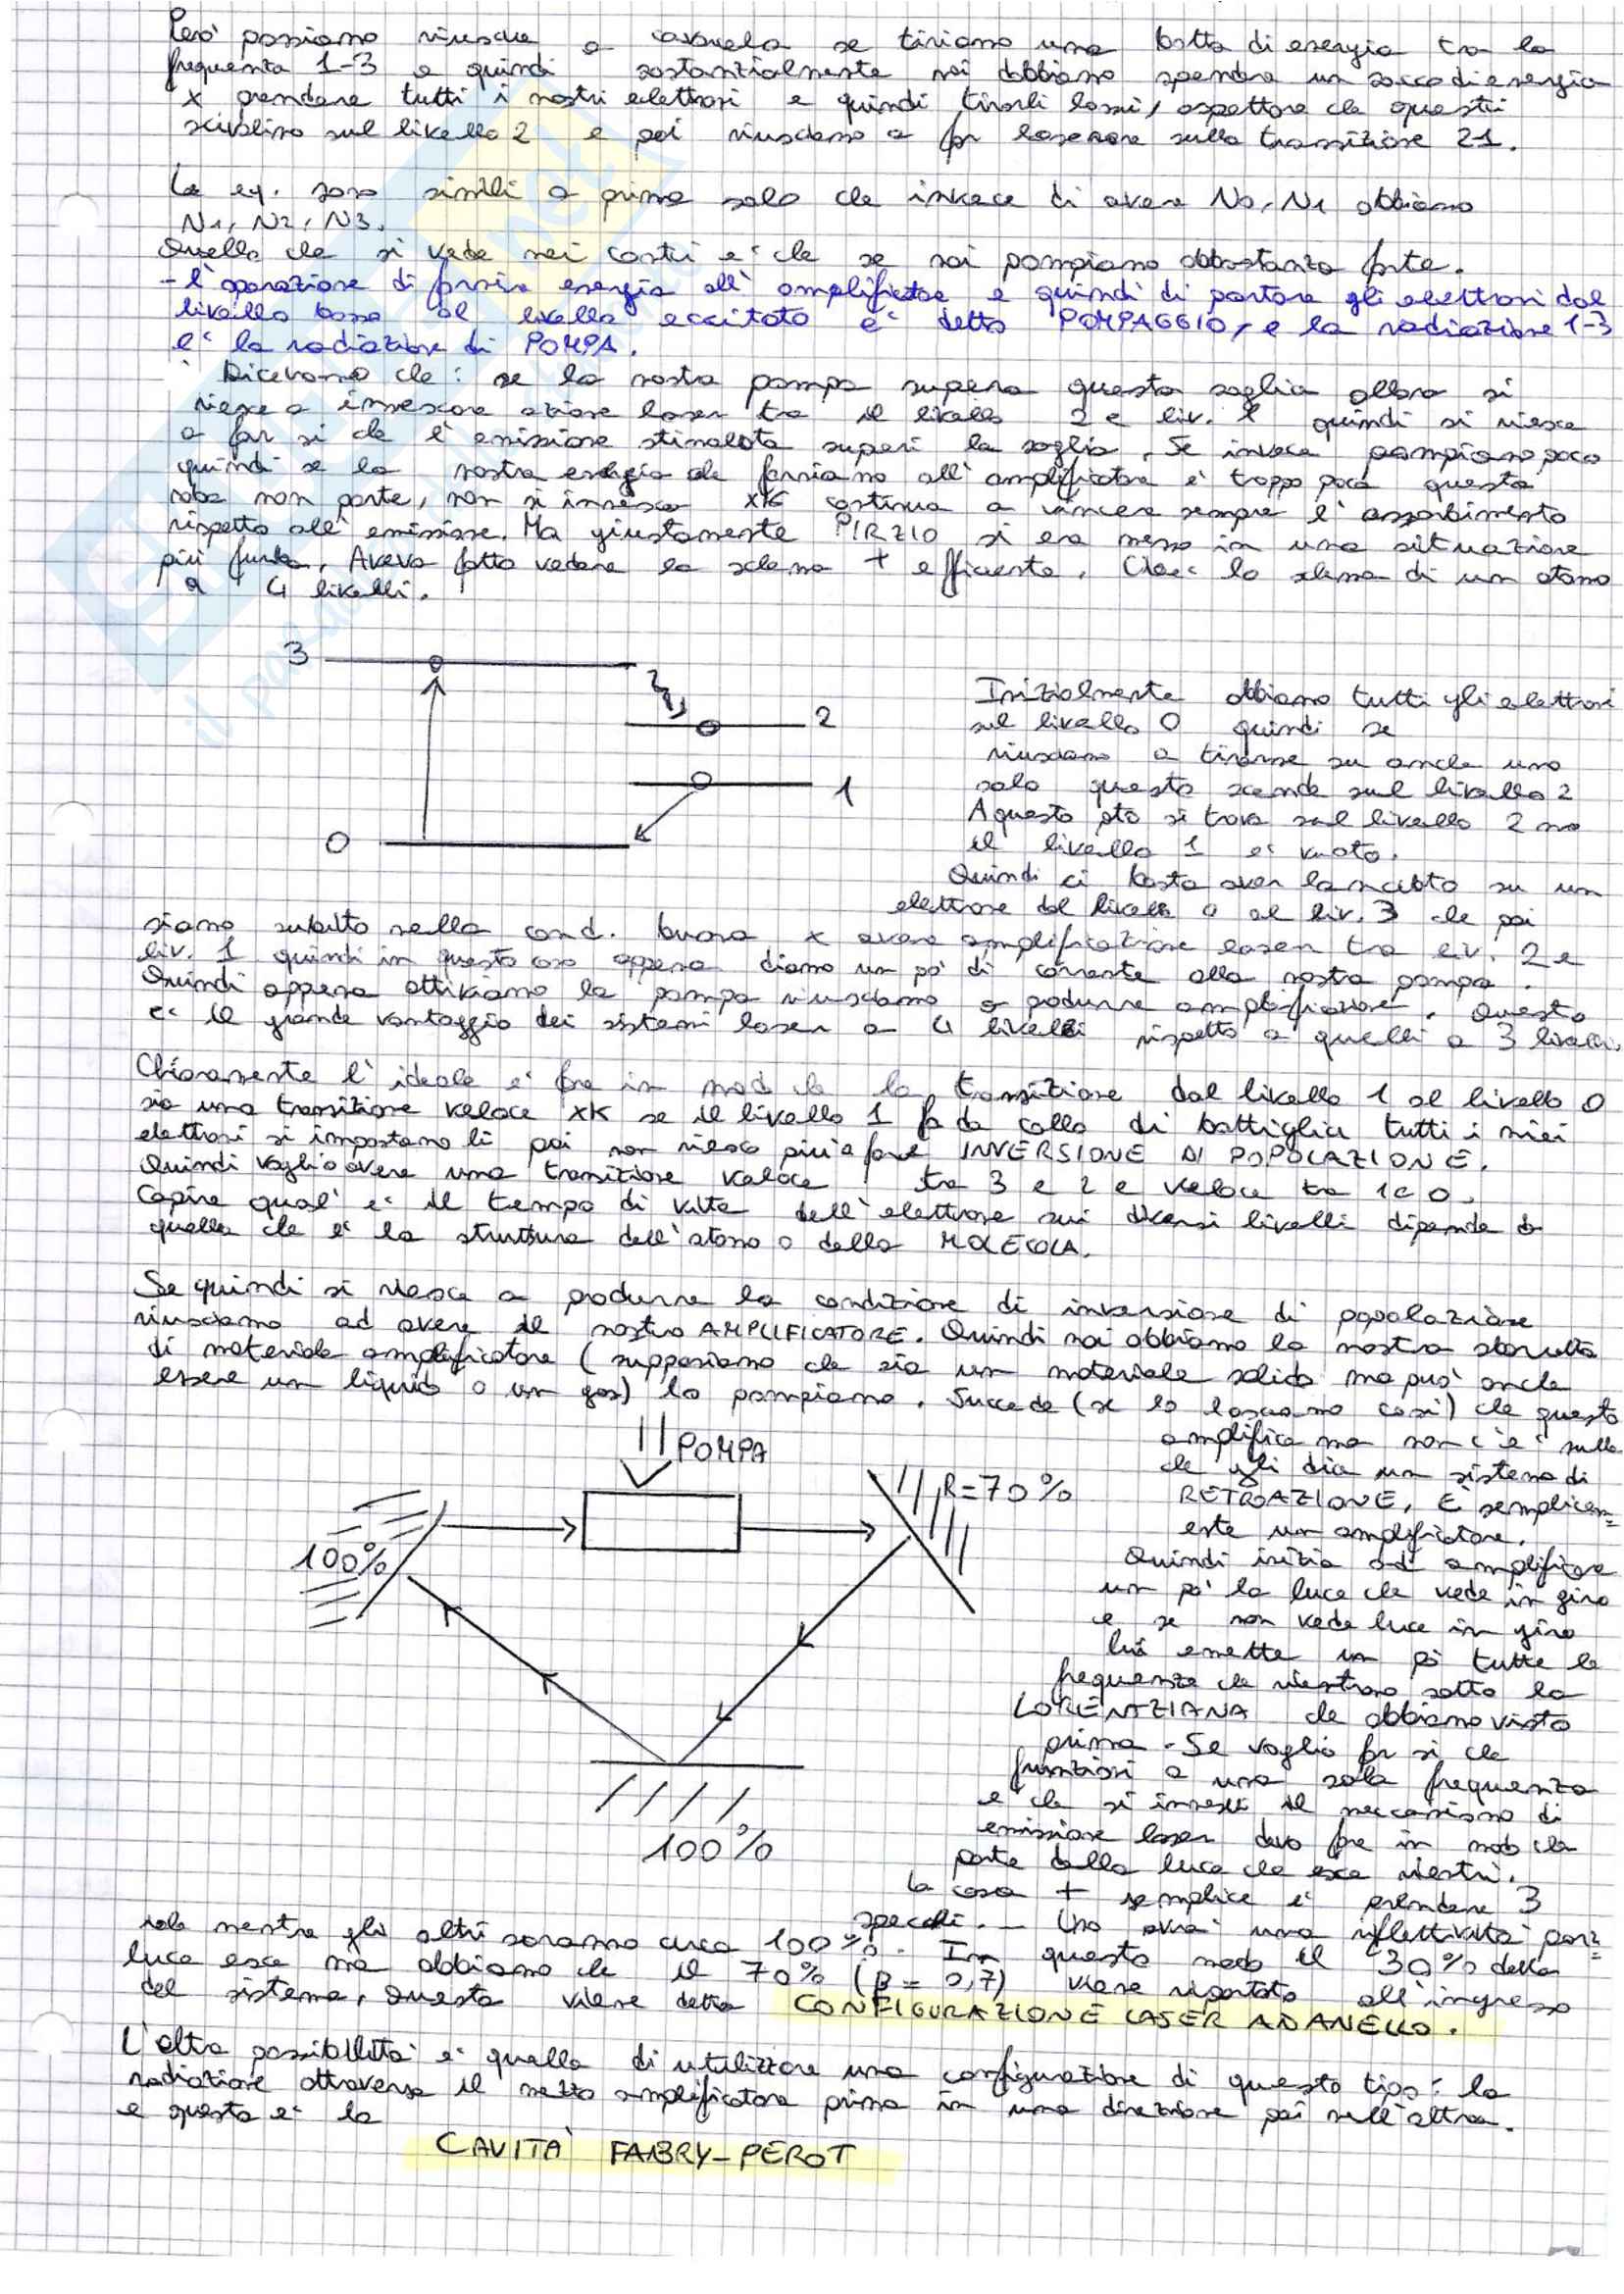 Però possiamo riuscire a cavarcela se tiriamo una botta di energia tra la
frequenza 1-3 e quindi sostanzialmente noi dobbiamo spendere un sacco di energia
x prendere tutti i nostri elettroni e quindi tirarli lassù, aspettare che questi
scivolino sul livello 2 e poi riusciamo a far laserare sulla transizione 21.
Le eq. sono simili a prima solo che invece di avere N0, N1 abbiamo
N1, N2, N3.
Quello che si vede nei conti e' che se noi pompiamo abbastanza forte.
- l'operazione di fornire energia all'amplificatore e quindi di portare gli elettroni dal
livello basso al livello eccitato e' detto POMPAGGIO, e la radiazione 1-3
e' la radiazione di POMPA.
Dicevamo che: se la nostra pompa supera questa soglia allora si
riesce a innescare azione laser tra il livello 2 e liv. 1 quindi si riesce
a far si che l'emissione stimolata superi la soglia. Se invece pompiamo poco
quindi se la nostra energia che forniamo all'amplificatore e' troppo poca questa
roba non parte, non si innesca xk continua a vincere sempre l'assorbimento
rispetto all'emissione. Ma giustamente PIRZIO si era messo in una situazione
più furba. Aveva fatto vedere lo schema + efficiente. Cioe' lo schema di un atomo
a 4 livelli.
3
2
1
0
Inizialmente abbiamo tutti gli elettroni
sul livello 0 quindi se
riusciamo a tirarne su anche uno
solo questo scende sul livello 2
A questo pto si trova sul livello 2 ma
il livello 1 e' vuoto.
Quindi ci basta aver lanciato su un
elettrone dal livello 0 al liv. 3 che poi
siamo subito nella cond. buona x avere amplificazione laser tra liv. 2 e
liv. 1 quindi in questo caso appena diamo un po' di corrente alla nostra pompa.
Quindi appena attiviamo la pompa riusciamo a produrre amplificazione. Questo
e' il grande vantaggio dei sistemi laser a 4 livelli rispetto a quelli a 3 livelli.
Chiaramente l'ideale e' fare in modo che la transizione dal livello 1 al livello 0
sia una transizione veloce xk se il livello 1 fa da collo di bottiglia tutti i miei
elettroni si impostano lì poi non riesco più a fare INVERSIONE DI POPOLAZIONE.
Quindi voglio avere una transizione veloce tra 3 e 2 e veloce tra 1 e 0.
Capire qual'e' il tempo di vita dell'elettrone sui diversi livelli dipende da
quella che e' la struttura dell'atomo o della MOLECOLA.
Se quindi si riesce a produrre la condizione di inversione di popolazione
riusciamo ad avere il nostro AMPLIFICATORE. Quindi noi abbiamo la nostra sbarretta
di materiale amplificatore (supponiamo che sia un materiale solido ma può anche
essere un liquido o un gas) lo pompiamo. Succede (se lo lasciamo così) che questo
amplifica ma non c'e' nulla
che gli dia un sistema di
RETROAZIONE, È semplicem=
ente un amplificatore.
POMPA
R=70%
100%
100%
Quindi inizia ad amplificare
un po' la luce che vede in giro
e se non vede luce in giro
lui emette un pò tutte le
frequenze che rientrano sotto la
LORENTZIANA che abbiamo visto
prima - Se voglio far si che
funzioni a una sola frequenza
e che si inneschi il meccanismo di
emissione laser devo fare in modo che
parte della luce che esce rientri.
la cosa + semplice e' prendere 3
specchi. - Uno avrà una riflettività parz=
iale mentre gli altri saranno circa 100%. In questo modo il 30% della
luce esce ma abbiamo che il 70% (R=0,7) viene riportato all'ingresso
del sistema. Questa viene detta CONFIGURAZIONE LASER AD ANELLO.
L'altra possibilità e' quella di utilizzare una configurazione di questo tipo: la
radiazione attraversa il mezzo amplificatore prima in una direzione poi nell'altra.
e questa e' la
CAVITA' FABRY-PEROT